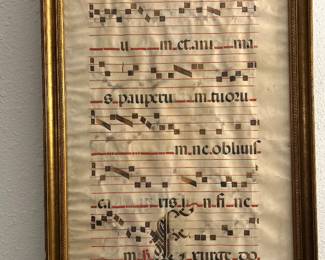 u m. et ani ma
s. pauperu m. tuoru
m. ne. obliuis
ca ris i n. fi. ne
m. Exurge do